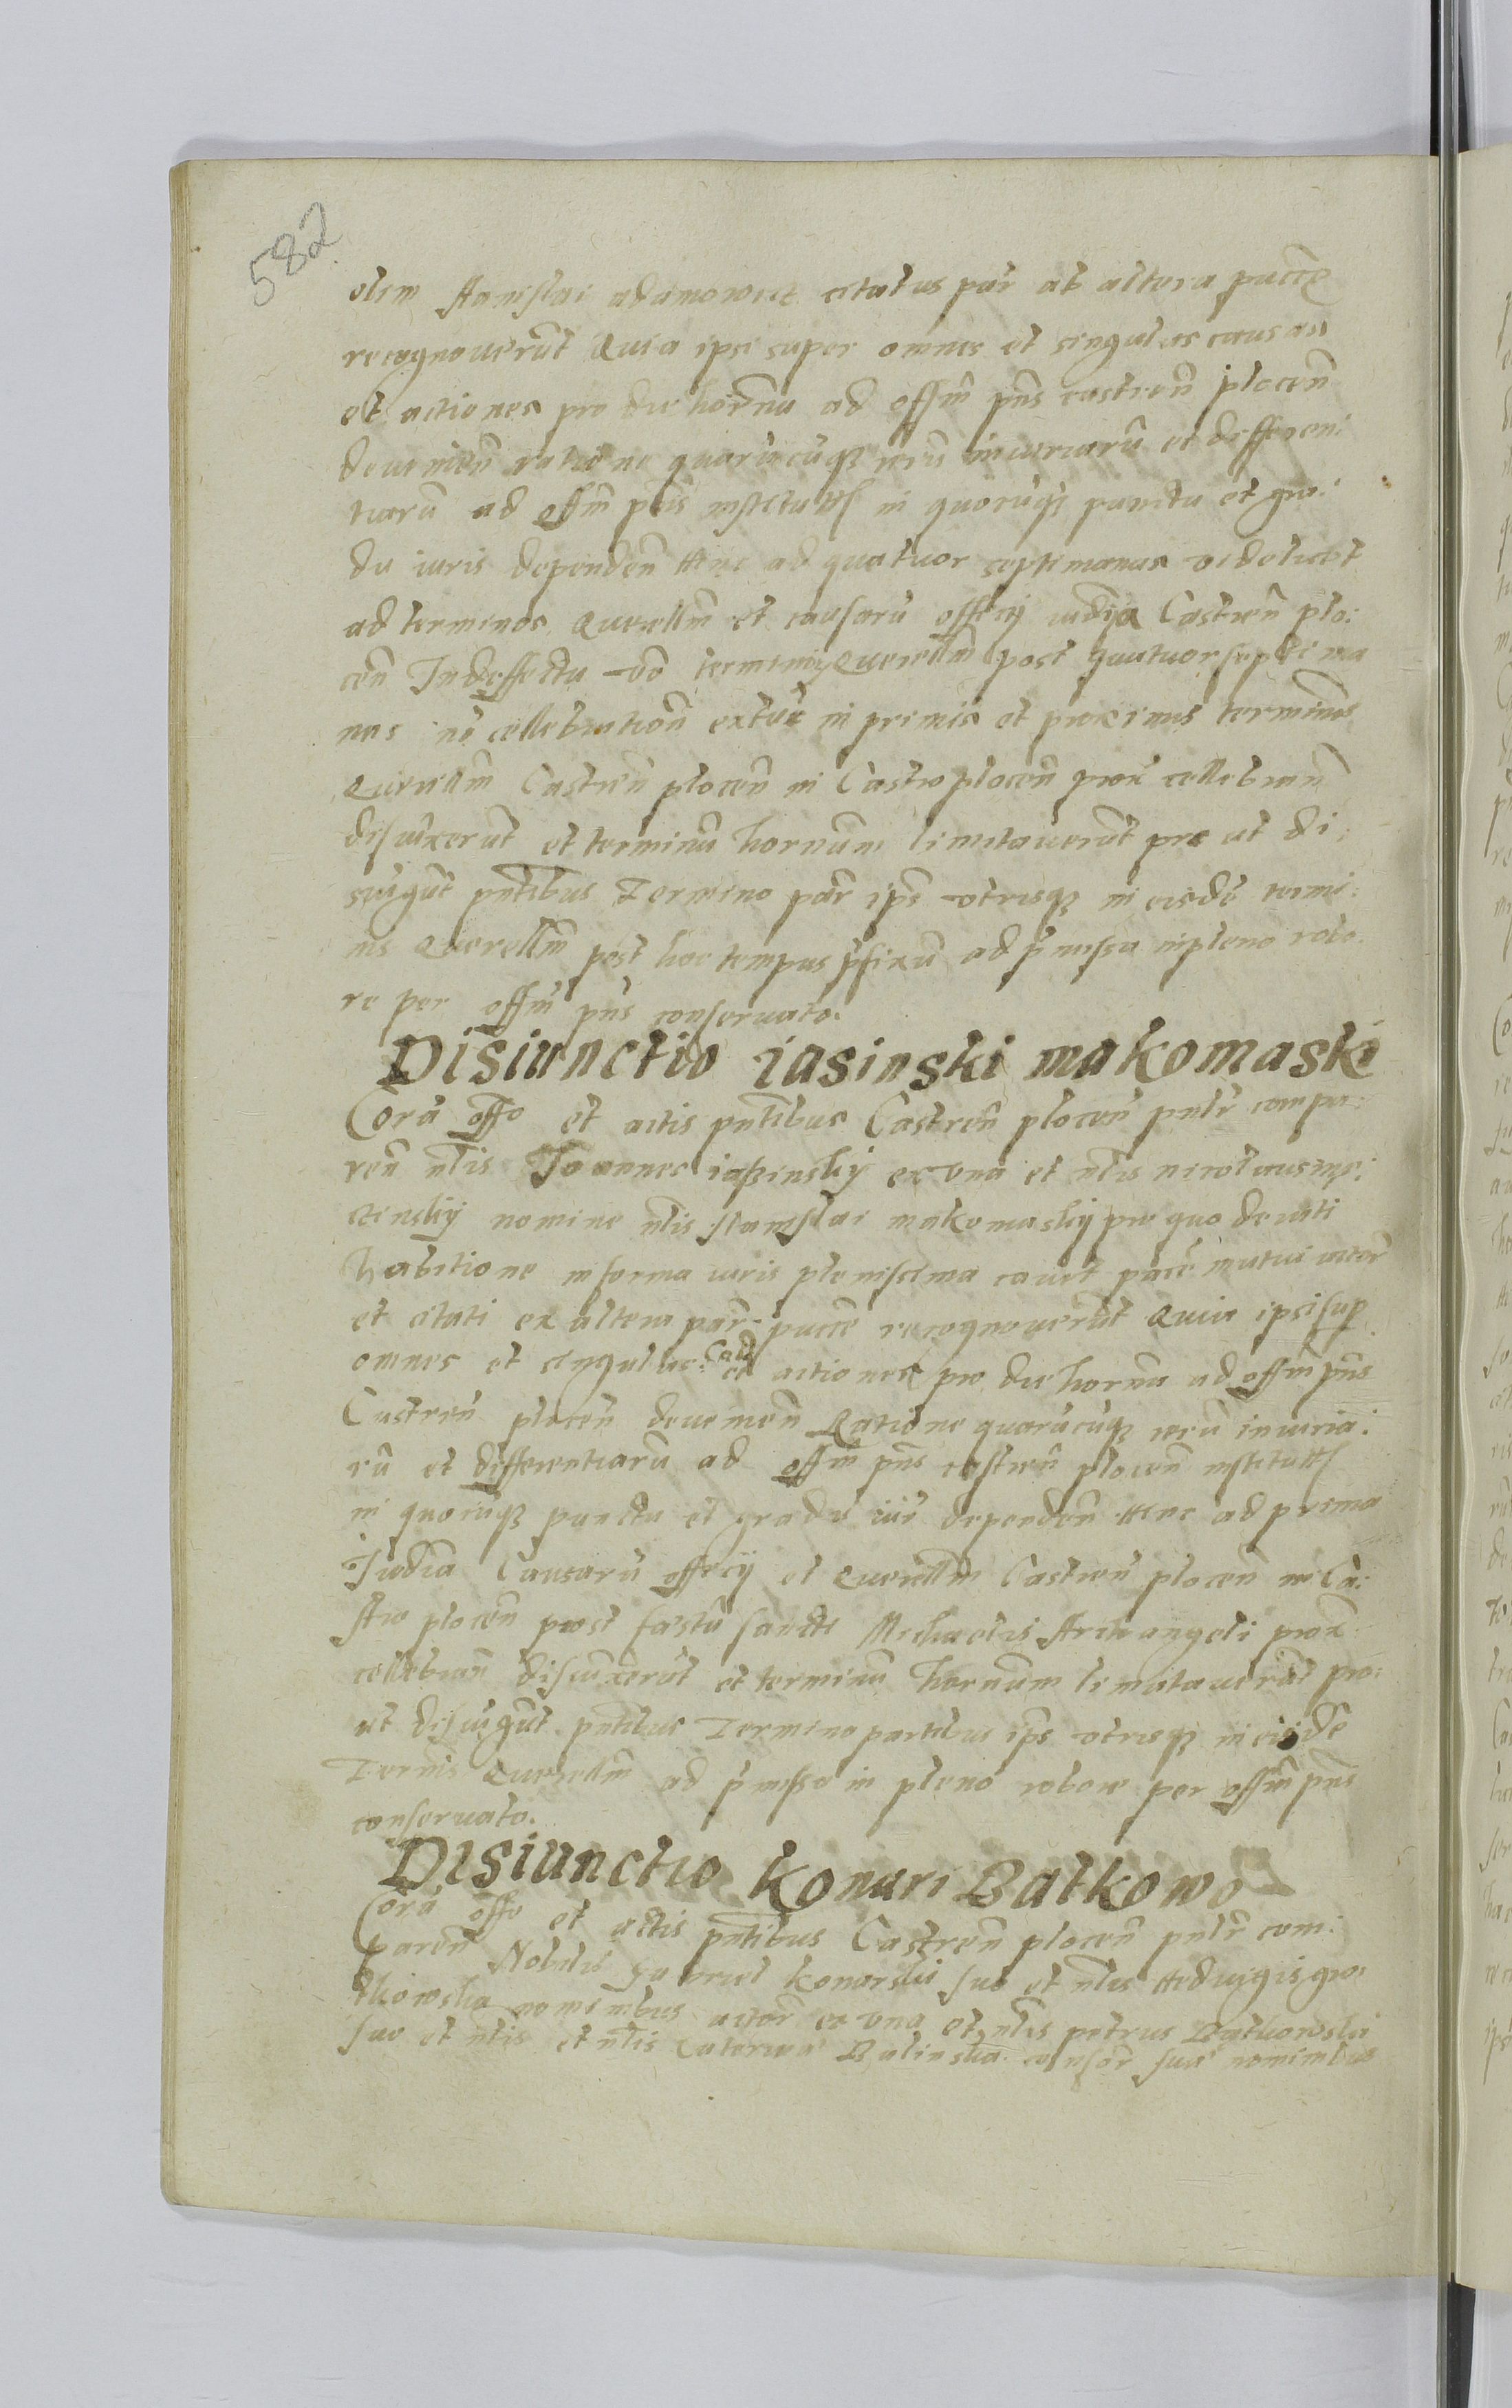 582
olim stanislai adamowicz citatus par̃ ab altera puctẽ
recognouerũt Quia ipsi super omnes et singulas causas
et actiones pro die horñna ad offm̃ pñs castreñ ploceñ
deuenieñ ratione quarũcũqꝫ rerũ iniuriarũ et differen:
tiarũ ad offm̃ pñs institutis in quocũqꝫ punctu et gra:
du iuris dependeñ hinc ad quatuor septimanas videlicet
ad terminos Querellm̃ et causarũ officij iudicia Castreñ plo:
ceñ In deffectu vo termini Querellm̃ post quatuor septima
nas nõ cellebrationĩ extũc in primis et proximis terminis
Querellm̃ Castreñ plocen̄ in Castro plocen̄ prox̃ cellebrañ
disiũxerũt et terminũ hornum limitauerũt pro ut di:
siũgũt pñtibus Termino par̃ ip̃s vtrisqꝫ in eisdẽ termi:
nis Querellm̃ post hoc tempus p̃fixũ ad p̃missa in pleno robo
re per offm̃ pñs conseruato.
Disiunctio iasinski makomaski
Corã offo et actis pñtibus Castreñ plocen̄ pñlr̃ compa:
reñ nlis Joannes iaßinskij ex vna et nlis nicolaus
cinskij nomine nlis stanislai makomaskij pro quo de rati
habitione in forma iuris plenissima cauit parẽ mutui actor̃
et citati ex altera par̃ puctẽ recognouerũt Quia ipsi sup
omnes et singulas Cas et actiones pro die horña ad offm̃ pñs
Castreñ plocen̄ deuenieñ Ratione quarũcũqꝫ rerũ iniuria:
rũ et differentiarũ ad offm̃ pñs castreñ plocen̄ institutis
in quocũqꝫ punctu et gradu iũr dependeñ hinc ad prima
Iudicia Causarũ officij et Querellm̃ Castreñ plocen̄ in Ca:
stro plocen̄ post festũ sancti Michaelis Archangeli prox̃
cellebrañ disiũxerũt et terminũ hornum limitauerũt pro:
ut disiũgũt pñtibus Termino partibus ip̃s vtrisqꝫ in eisdẽ
Ternis Querellm̃ ad p̃missa in pleno robore per offm̃ pñs
conseruato.
Disiunctio Konari Batkowo
Corã offo et actis pñtibus Castreñ plocen̄ pñlr̃ com:
pareñ Nobilis gabriel konarski suo et nlis Heduigis gro:
tkowska nominibus actor̃ ex vna et nlis petrus Batkowski
suo et nlis et nlis Caterina Balinska consor̃ sua nominibus